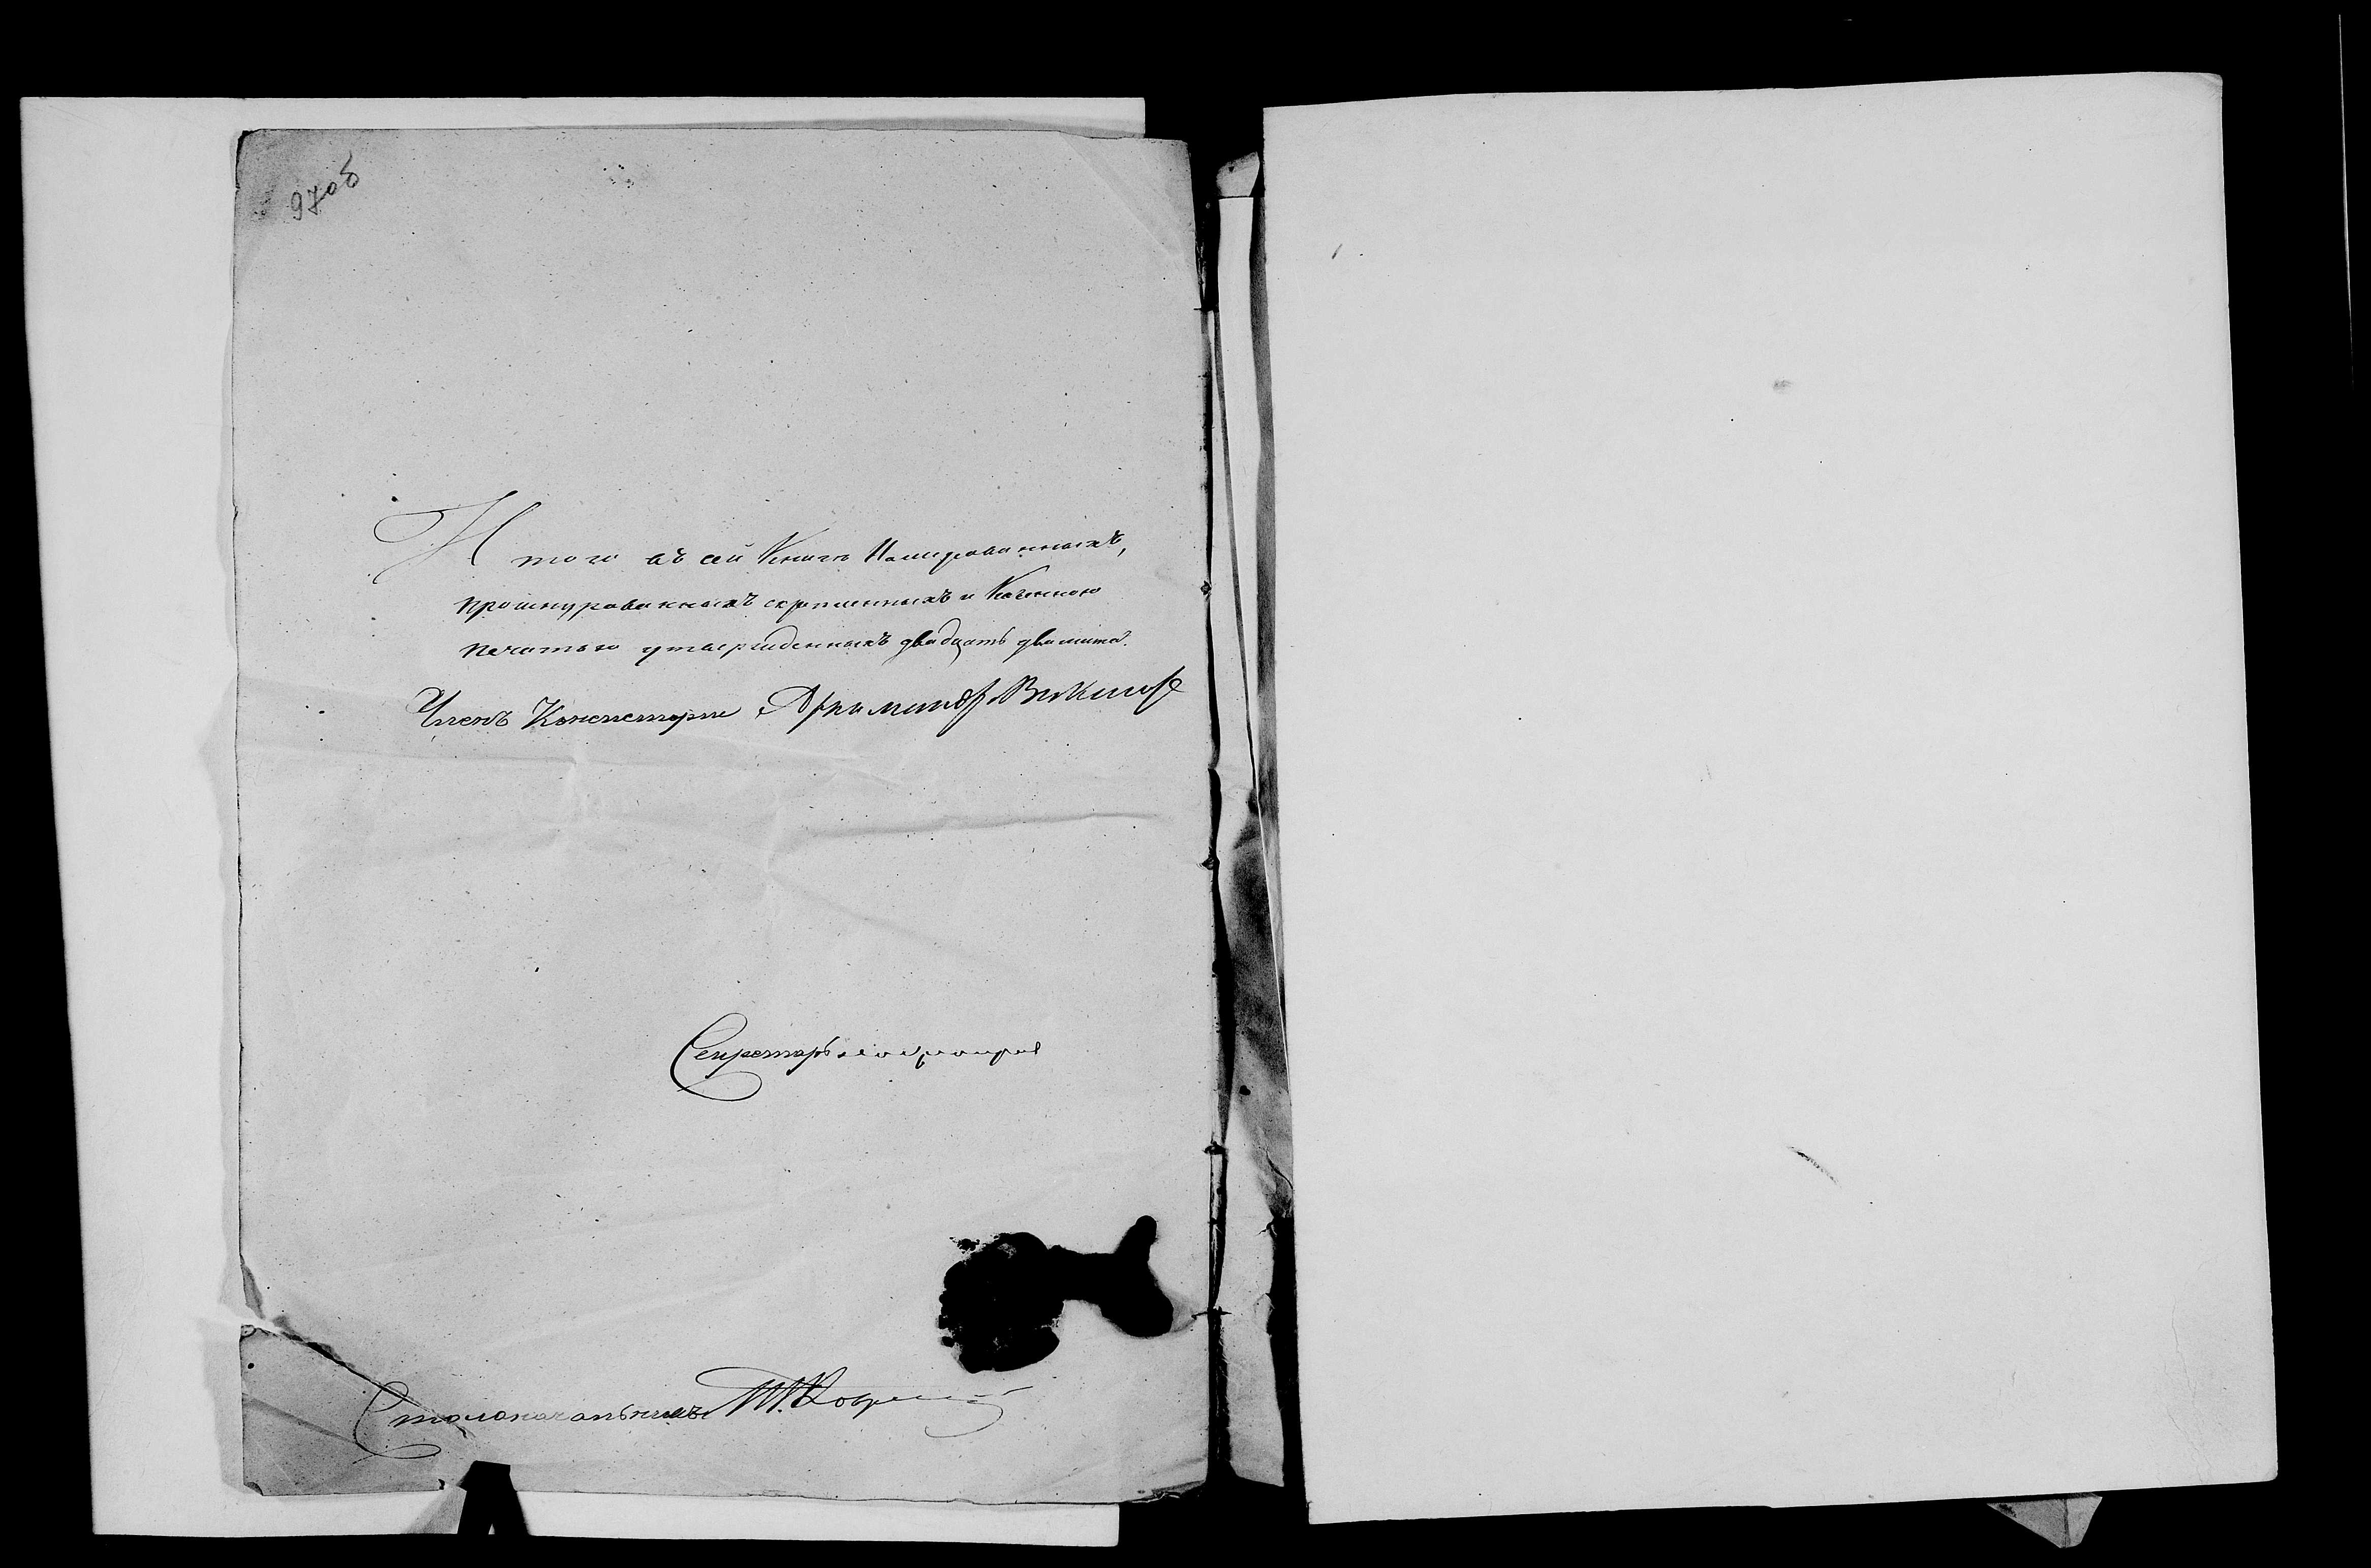 97об
Итого въ сей Книге Номерованныхъ,
прошнурованныхъ скрепленныхъ и Казенною
печатью утвержденныхъ двадцать два листа.
Членъ Консисторіи Архимандр.
Секретарь
Столоначальникъ